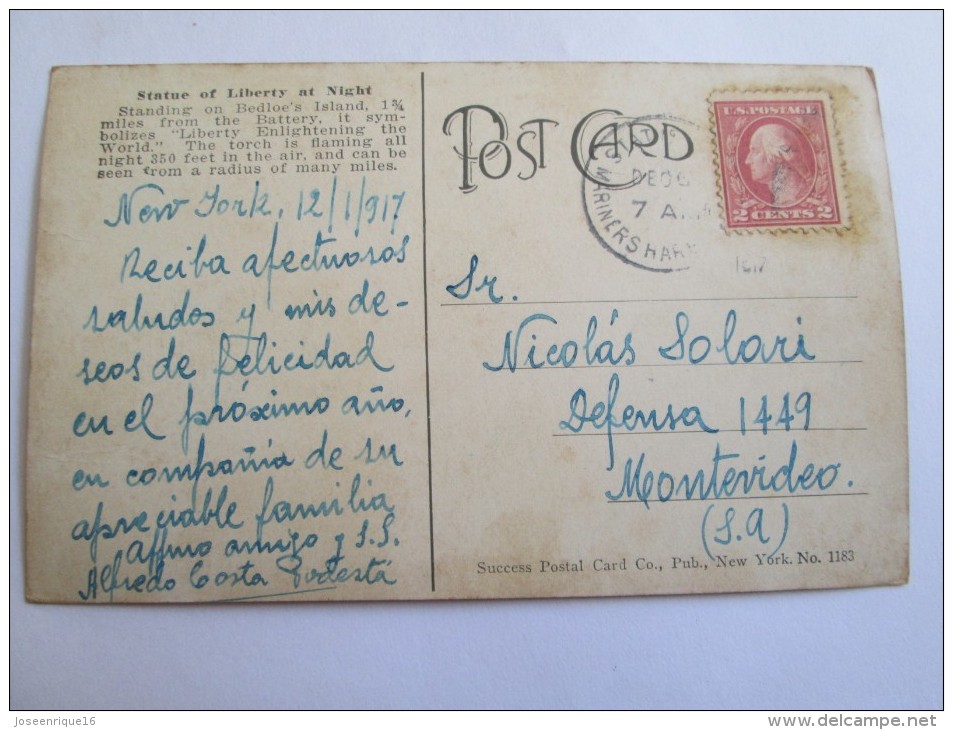 Statue of Liberty at Night
Standing on Bedloe's Island, 1¾
miles from the Battery, it sym-
bolizes "Liberty Enlightening the
World." The torch is flaming all
night 350 feet in the air, and can be
seen from a radius of many miles.
New York, 12/1/917
Reciba afectuosos
saludos y mis de-
seos de felicidad
en el próximo año,
en compañía de su
apreciable familia
affmo amigo y S.S.
Alfredo Costa Podestá
POST CARD
MARINERS HAR
DEC
7 A.
U.S. POSTAGE
2 CENTS 2
Sr.
Nicolás Solari
Defensa 1449
Montevideo.
(S.A)
Success Postal Card Co., Pub., New York. No. 1183
Joseenrique16
www.delcampe.net